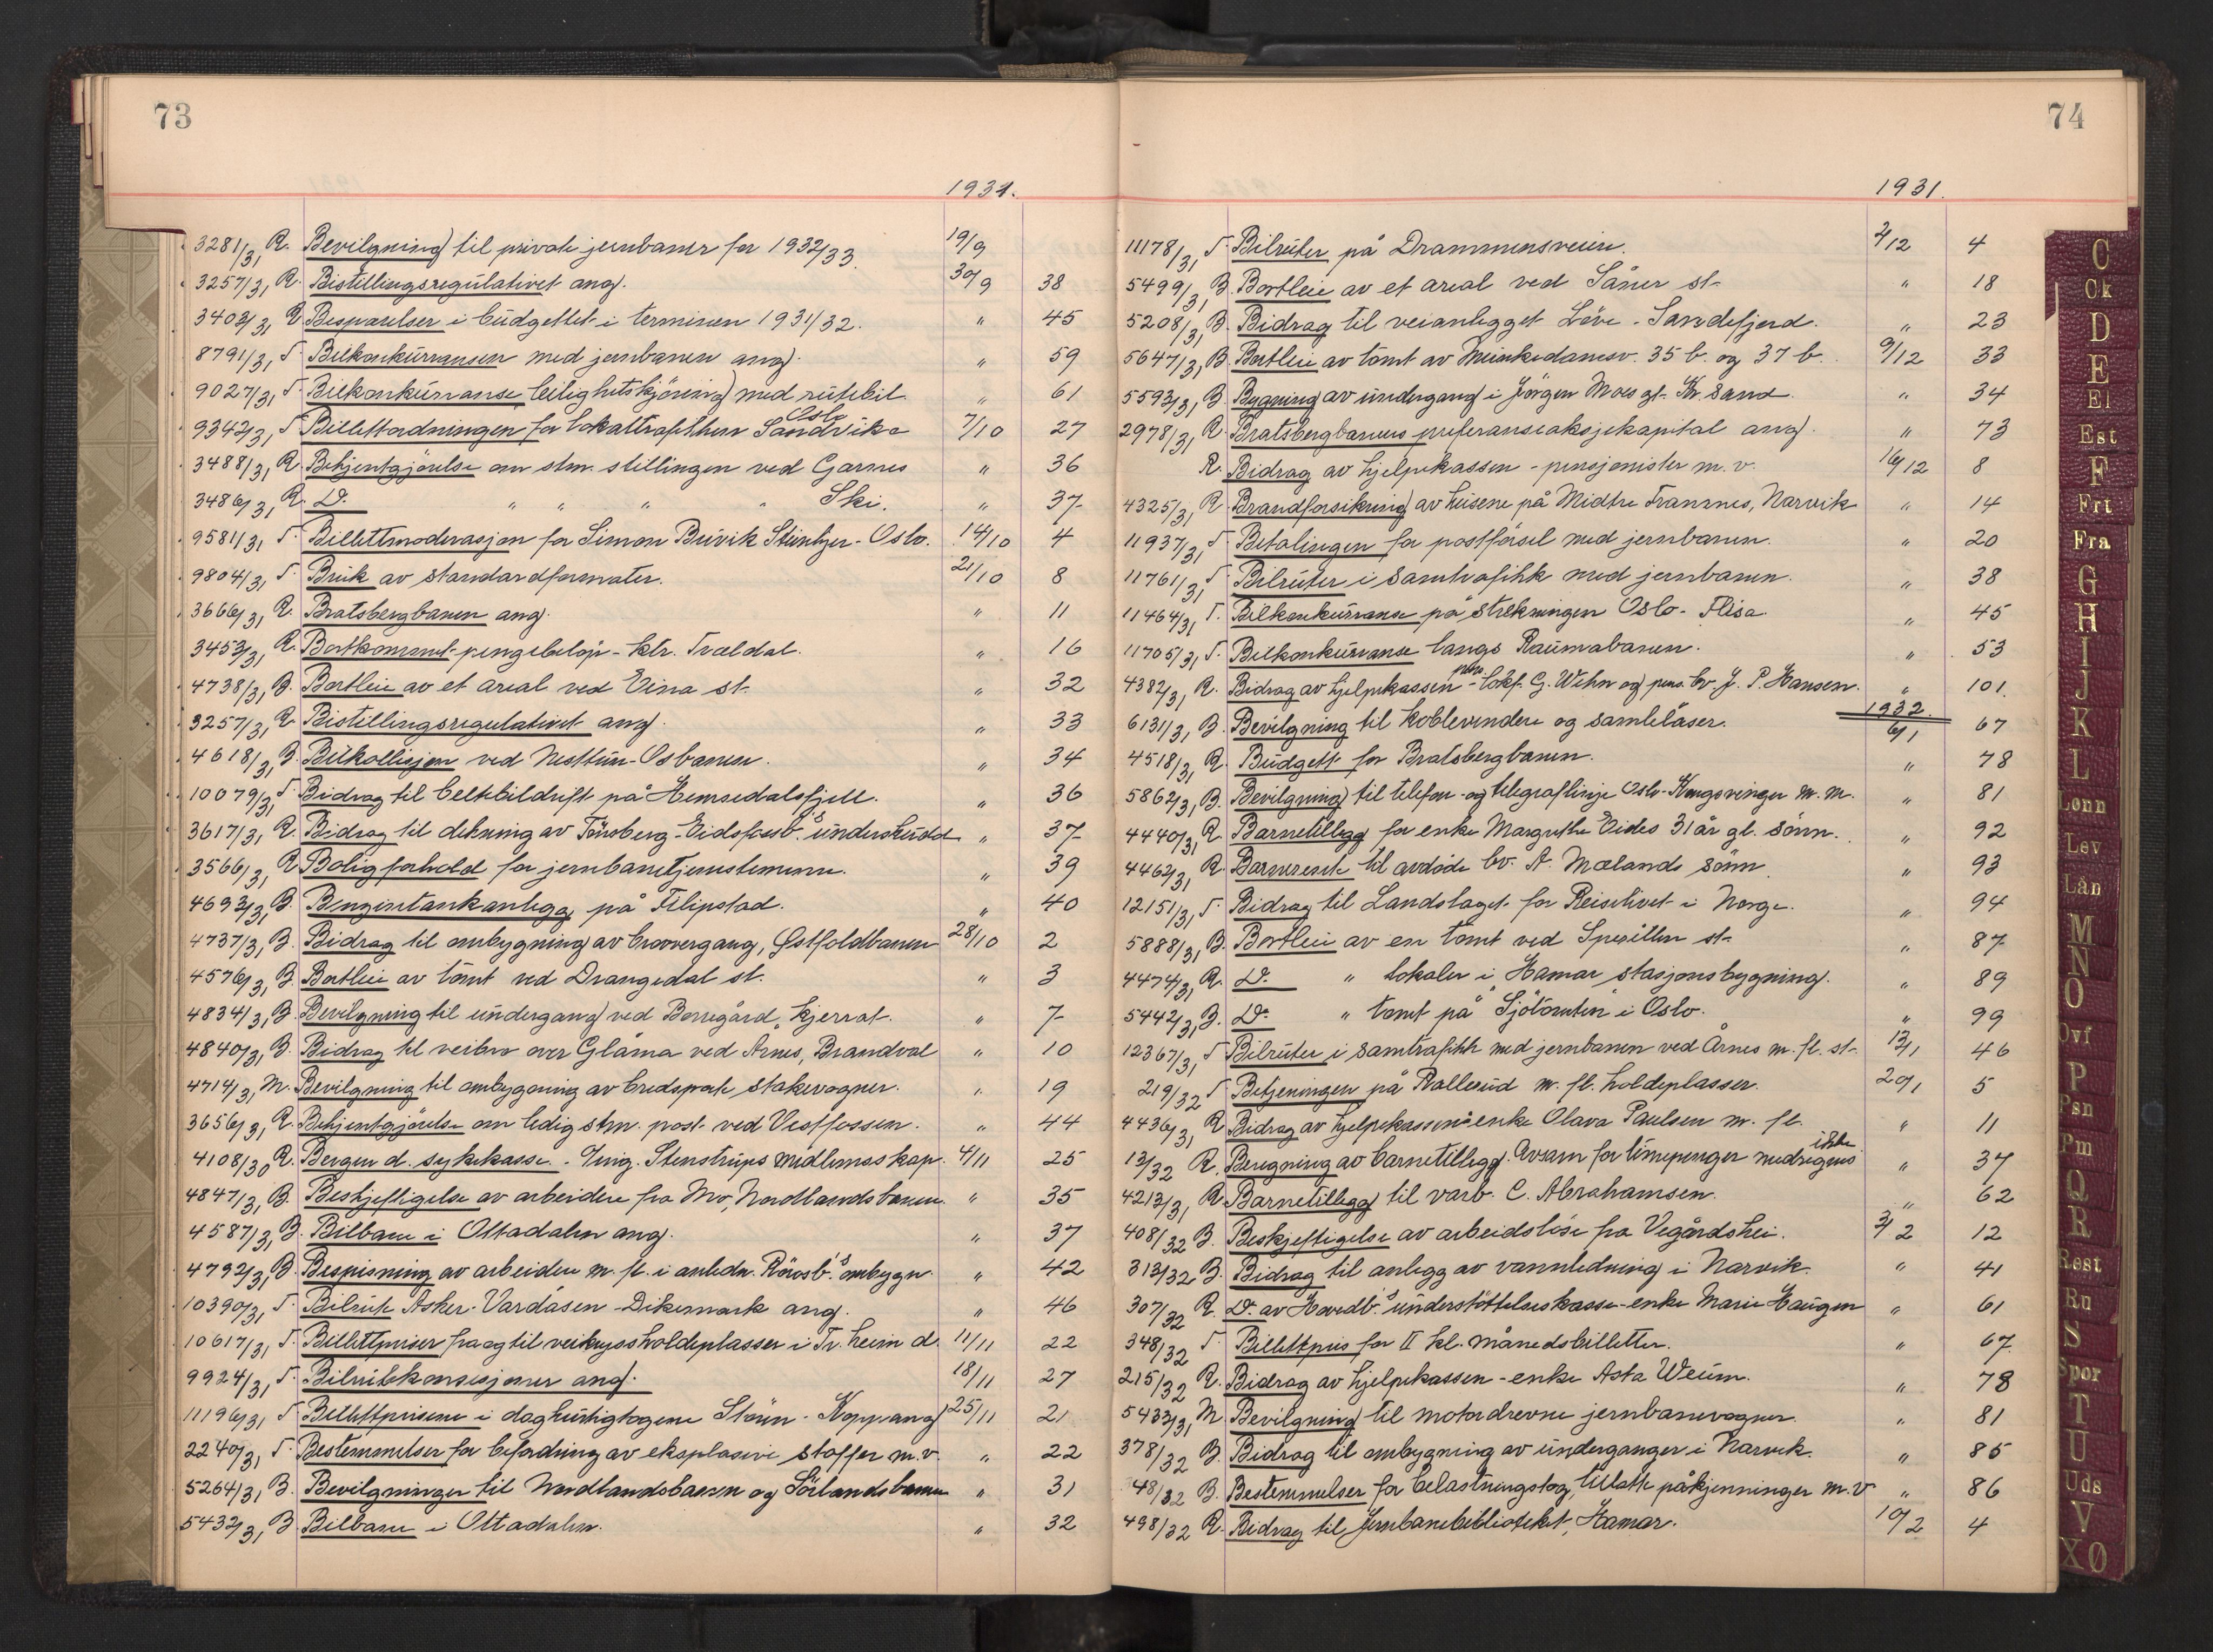 73
1931.
3281/31 R. Bevilgning til private jernbaner for 1932/33. 19/9
3257/31 R. Bistillingsregulativet ang. 30/9 38
3403/31 R Besparelser i budgettet i terminen 1931/32. " 45
8791/31 T. Bilkonkurransen med jernbanen ang. " 59
9027/31 T. Bilkonkurranse leilighetskjøring med rutebil " 61
9342/31 T Billettordningen for lokaltrafikken Oslo Sandvika 7/10 27
3488/31 R. Bekjentgjørelse om stm. stillingen ved Garnes " 36
3486/31 R. Do. " " " " Ski. " 37
9581/31 T. Billettmoderasjon for Simon Buvik Steinkjer - Oslo. 14/10 4
9804/31 T. Bruk av standardformater. 21/10 8
3666/31 R. Bratsbergbanen ang. " 11
3453/31 R. Bortkommet pengebeløp - ktr. Trældal. " 16
4738/31 B. Bortleie av et areal ved Eina st. " 32
3257/31 R. Bistillingsregulativet ang. " 33
4618/31 B. Bilkollisjon ved Nesttun-Osbanen. " 34
10079/31 T Bidrag til beltebildrift på Hemsedalsfjell. " 36
3617/31 R. Bidrag til dekning av Tønsberg-Eidsfossb.s underskudd " 37
3566/31 R Boligforhold for jernbanetjenestemenn. " 39
4693/31 B. Bensintankanlegg på Filipstad. " 40
4737/31 B. Bidrag til ombygning av broovergang, Østfoldbanen 28/10 2
4576/31 B. Bortleie av tomt ved Drangedal st. " 3
4834/31 B. Bevilgning til undergang ved Borregård, Kjerrat. " 7
4840/31 B. Bidrag til veibro over Glåma ved Arnes, Brandval " 10
4714/31 M. Bevilgning til ombygning av bredsporte stakevogner. " 19
3656/31 R. Bekjentgjørelse om ledig stm. post ved Vestfossen. " 44
4108/30 R. Bergen d. sykekasse - Ening. Stenstrups medlemsskap. 4/11 25
4847/31 B. Beskjeftigelse av arbeidere fra Mo, Nordlandsbanen " 35
4587/31 B. Bilbane i Ottadalen ang. " 37
4792/31 B. Bespisning av arbeidere m. fl. i anledn. Rörosb.s ombygn. " 42
10390/31 T. Bilrute Asker-Vardåsen-Dikemark ang. " 46
10617/31 T. Billettpriser fra og til veikryssholdeplasser i Tr.heim d. 11/11 22
9924/31 T. Bilrutekonsesjoner ang. 18/11 27
11196/31 T Billettprisene i daghurtigtogene Stören - Koppang 25/11 21
2240/31 T. Bestemmelser for befordring av eksplosive stoffer m.v. " 22
5264/31 B. Bevilgninger til Nordlandsbanen og Sörlandsbanen " 31
5432/31 B Bilbane i Ottadalen. " 32
74
1931.
11178/31 T. Bilruter på Drammensveien. 2/12 4
5499/31 B. Bortleie av et areal ved Såner st. " 18
5208/31 B. Bidrag til veianlegget Löve - Sandefjord. " 23
5647/31 B. Bortleie av tomt av Munkedamsv. 35 b. og 37 b. 9/12 33
5593/31 B. Bygning av undergang i Jörgen Moes gt. Kr.sand. " 34
2978/31 R. Bratsbergbanens preferanseaksjekapital ang. " 73
R. Bidrag av hjelpekassen - pensjonister m. v. 16/12 8
4325/31 R. Brandforsikring av husene på Midtre Framnes, Narvik " 14
11937/31 T Betalingen for postförsel med jernbanen. " 20
11761/31 T. Bilruter i samtrafikk med jernbanen. " 38
11464/31 T. Bilkonkurranse på strekningen Oslo - Flisa " 45
11705/31 T. Bilkonkurranse langs Raumabanen. " 53
4382/31 R. Bidrag av hjelpekassen - pens. lokf. G. Wehn og pens. bv. J. P. Hansen. " 101.
1932.
6131/31 B. Bevilgning til koblevendere og samlelåser. 6/1 67
4518/31 R. Budgett for Bratsbergbanen. " 78
5862/31 B. Bevilgning til telefon- og telegraflinje Oslo-Kongsvinger m. m. " 81
4440/31 R. Barnetillegg for enke Margrethe Eides 31 år gl. sönn. " 92
4462/31 R. Barnerente til avdöde bv. A. Mælands sönn. " 93
12151/31 T. Bidrag til Landslaget for Reiselivet i Norge. " 94
5888/31 B. Bortleie av en tomt ved Sperillen st. " 87
4474/31 R. Do. " lokaler i Hamar stasjonsbygning. " 89
5442/31 B. Do. " tomt på "Sjötomten" i Oslo. " 99
12367/31 T Bilruter i samtrafikk med jernbanen ved Årnes m. fl. st. 13/1 46
219/32 T Betjeningen på Rallerud m. fl. holdeplasser. 20/1 5
4436/31 R Bidrag av hjelpekassen - enke Olava Paulsen m. fl. " 11
13/32 R. Beregning av barnetillegg. Avsavn for timepenger ikke medregnes " 37
4213/31 R Barnetillegg til varb. C. Abrahamsen. " 62
408/32 B. Beskjeftigelse av arbeidslöse fra Vegårdshei. 3/2 12
313/32 B. Bidrag til anlegg av vannledning i Narvik. " 41
307/32 R. Do. av Hovedb.s understöttelseskasse - enke Marie Haugen " 61
348/32 T Billettpris for II kl. månedsbilletter. " 67
215/32 R. Bidrag av hjelpekassen - enke Asta Weum. " 78
5433/31 M. Bevilgning til motordrevne jernbanevogner. " 81
378/32 B. Bidrag til ombygning av underganger i Narvik. " 85
48/32 B. Bestemmelser for belastningstog, tillatte påkjenninger m.v. " 86
498/32 R. Bidrag til Jernbanebiblioteket, Hamar. 10/2 4
C
Ck
D
E
El
Est
F
Frt
Fra
G
H
I
J
K
L
Lønn
Lev
Lån
M
N
O
Ovf
P
Psn
Pm
Q
R
Rest
Ru
S
Spor
T
U
Uds
V
XØ